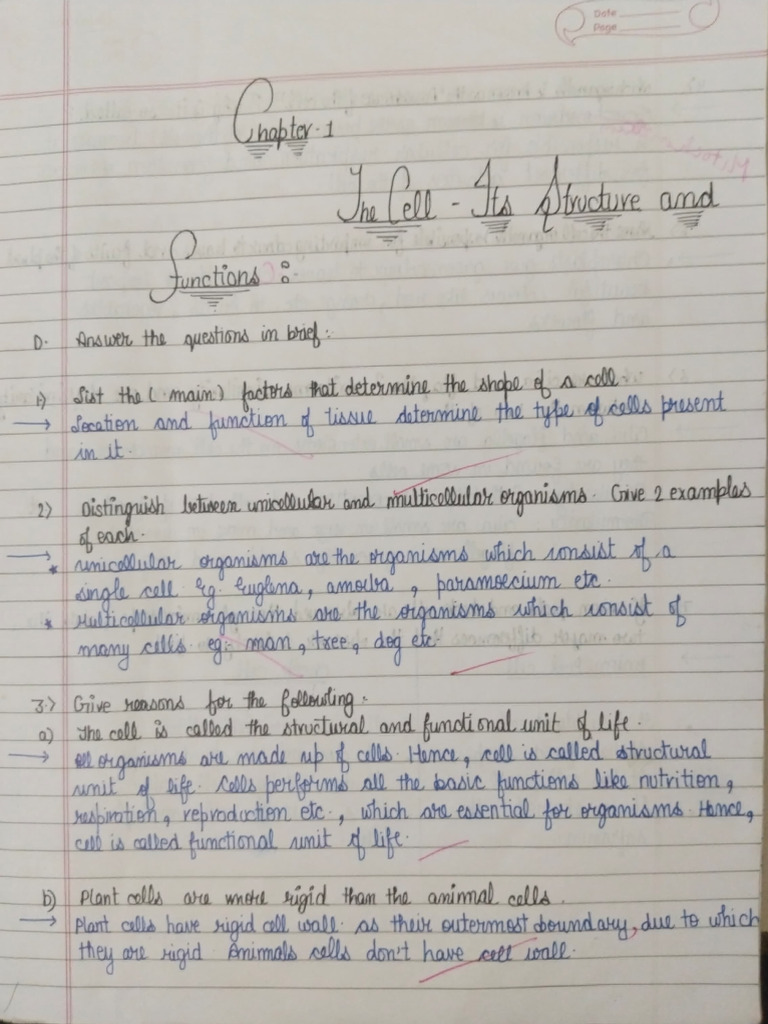 Date
Page
Chapter-1
The Cell - Its Structure and
Functions :-
D. Answer the questions in brief:
1) List the (main) factors that determine the shape of a cell.
→ Location and function of tissue determine the type of cells present
in it.
2) Distinguish between unicellular and multicellular organisms. Give 2 examples
of each.
→ * Unicellular organisms are the organisms which consist of a
single cell eg. Euglena, amoeba, paramoecium etc.
* Multicellular organisms are the organisms which consist of
many cells. eg:- man, tree, dog etc.
3.) Give reasons for the following:
a) The cell is called the structural and functional unit of life.
→ All organisms are made up of cells. Hence, cell is called structural
unit of life. Cells performs all the basic functions like nutrition,
respiration, reproduction etc., which are essential for organisms. Hence,
cell is called functional unit of life.
b) Plant cells are more rigid than the animal cells.
→ Plant cells have rigid cell wall as their outermost boundary, due to which
they are rigid Animals cells don't have cell wall.